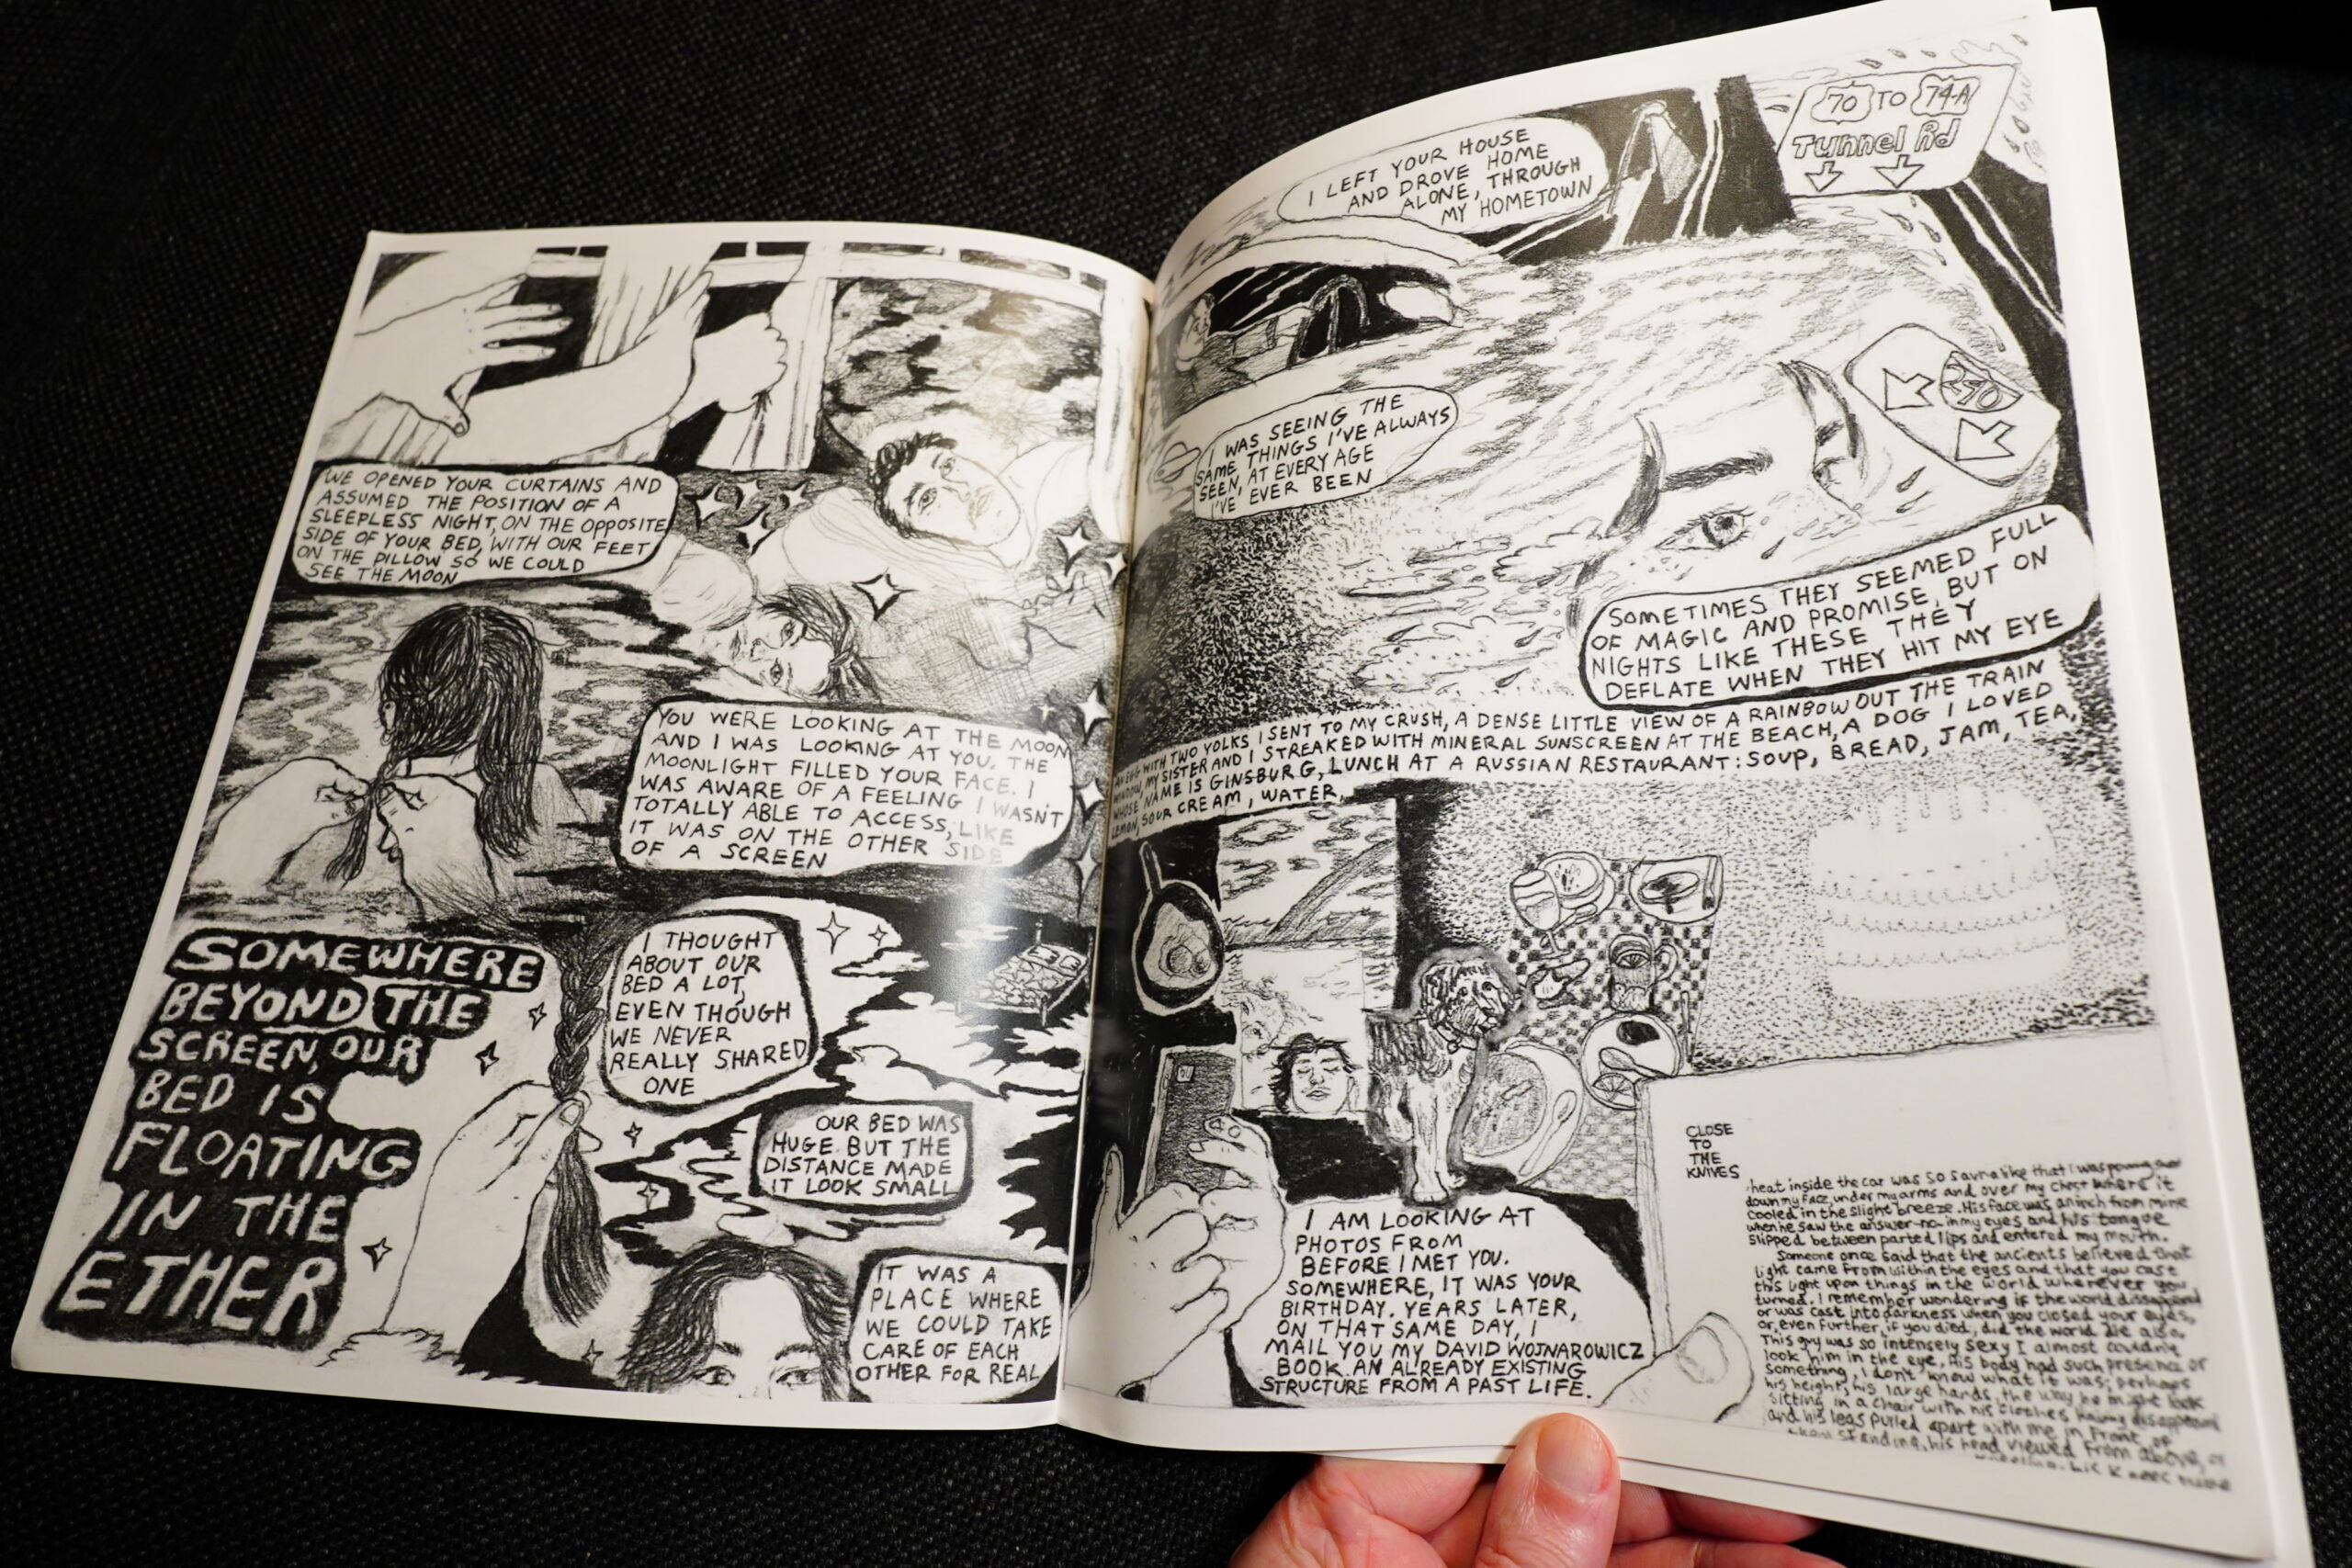 WE OPENED YOUR CURTAINS AND
ASSUMED THE POSITION OF A
SLEEPLESS NIGHT, ON THE OPPOSITE
SIDE OF YOUR BED, WITH OUR FEET
ON THE PILLOW SO WE COULD
SEE THE MOON
YOU WERE LOOKING AT THE MOON
AND I WAS LOOKING AT YOU. THE
MOONLIGHT FILLED YOUR FACE. I
WAS AWARE OF A FEELING I WASN'T
TOTALLY ABLE TO ACCESS, LIKE
IT WAS ON THE OTHER SIDE
OF A SCREEN
SOMEWHERE
BEYOND THE
SCREEN, OUR
BED IS
FLOATING
IN THE
ETHER
I THOUGHT
ABOUT OUR
BED A LOT,
EVEN THOUGH
WE NEVER
REALLY SHARED
ONE
OUR BED WAS
HUGE BUT THE
DISTANCE MADE
IT LOOK SMALL
IT WAS A
PLACE WHERE
WE COULD TAKE
CARE OF EACH
OTHER FOR REAL
I LEFT YOUR HOUSE
AND DROVE HOME
ALONE, THROUGH
MY HOMETOWN
70 TO 74-A
Tunnel Rd
I WAS SEEING THE
SAME THINGS I'VE ALWAYS
SEEN, AT EVERY AGE
I'VE EVER BEEN
240
SOMETIMES THEY SEEMED FULL
OF MAGIC AND PROMISE, BUT ON
NIGHTS LIKE THESE THEY
DEFLATE WHEN THEY HIT MY EYE
AN EGG WITH TWO YOLKS I SENT TO MY CRUSH, A DENSE LITTLE VIEW OF A RAINBOW OUT THE TRAIN
WINDOW, MY SISTER AND I STREAKED WITH MINERAL SUNSCREEN AT THE BEACH, A DOG I LOVED
WHOSE NAME IS GINSBURG, LUNCH AT A RUSSIAN RESTAURANT: SOUP, BREAD, JAM, TEA,
LEMON, SOUR CREAM, WATER,
I AM LOOKING AT
PHOTOS FROM
BEFORE I MET YOU.
SOMEWHERE, IT WAS YOUR
BIRTHDAY. YEARS LATER,
ON THAT SAME DAY, I
MAIL YOU MY DAVID WOJNAROWICZ
BOOK. AN ALREADY EXISTING
STRUCTURE FROM A PAST LIFE.
CLOSE
TO
THE
KNIVES
heat inside the car was so sauna like that I was pouring
down my face, under my arms and over my chest where it
cooled in the slight breeze. His face was an inch from mine
when he saw the answer-no-in my eyes and his tongue
slipped between parted lips and entered my mouth.
Someone once said that the ancients believed that
light came from within the eyes and that you cast
this light upon things in the world wherever you
turned. I remember wondering if the world dissappeared
or was cast into darkness when you closed your eyes,
or, even further, if you died, did the world die also.
This guy was so intensely sexy I almost couldn't
look him in the eye. His body had such presence or
something, I don't know what it was; perhaps
his height, his large hands, the way he might look
sitting in a chair with his clothes having disappeared
and his legs pulled apart with me in front of
standing, his head viewed from above, or